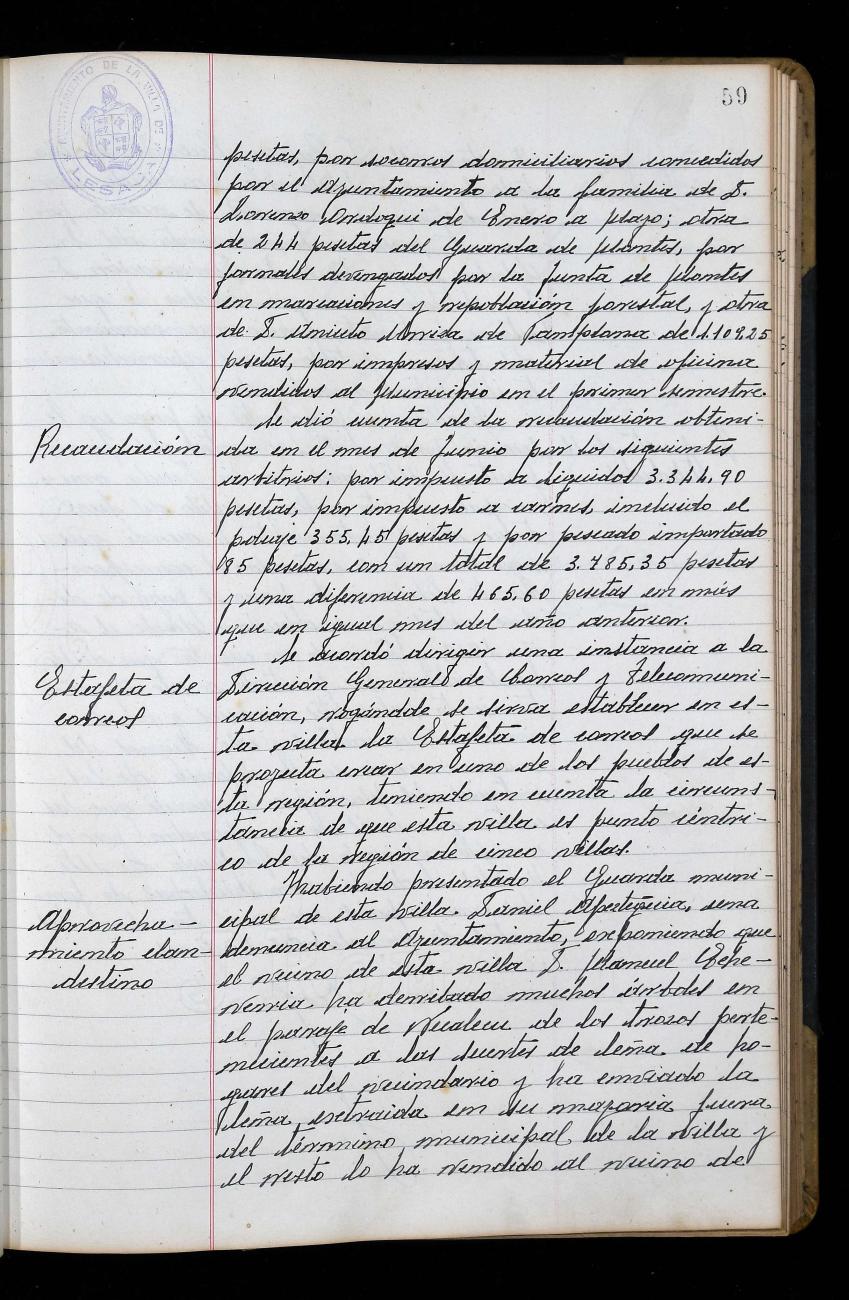 AYUNTAMIENTO DE LA VILLA DE
LESACA
59
pesetas, por socorros domiciliarios concedidos
por el Ayuntamiento a la familia de D.
Lorenzo Ordoqui de Enero a Mayo; otra
de 244 pesetas del Guarda de Montes, por
jornales devengados por la Junta de Montes
en marcaciones y repoblación forestal, y otra
de D. Aniceto Urriza de Pamplona de 1.109,25
pesetas, por impresos y material de oficina
vendidos al Municipio en el primer semestre.
Recaudación
Se dió cuenta de la recaudación obteni-
da en el mes de Junio por los siguientes
arbitrios: por impuesto a líquidos 3.344,90
pesetas, por impuesto a carnes, incluido el
potaje 355,45 pesetas y por pescado importado
85 pesetas, con un total de 3.785,35 pesetas
y una diferencia de 465,60 pesetas en más
que en igual mes del año anterior.
Estafeta de
correos
Se acordó dirigir una instancia a la
Dirección General de Correos y Telecomuni-
cación, rogándole se sirva establecer en es-
ta villa la Estafeta de correos que se
proyecta crear en uno de los pueblos de es-
ta región, teniendo en cuenta la circuns-
tancia de que esta villa es punto céntri-
co de la región de cinco villas.
Aprovecha-
miento clan-
destino
Habiendo presentado el Guarda muni-
cipal de esta villa Daniel Apeteguia, una
denuncia al Ayuntamiento, exponiendo que
el vecino de esta villa D. Manuel Eche-
verria ha derribado muchos árboles en
el paraje de de los trozos perte-
necientes a las suertes de leña de ho-
gares del vecindario y ha enviado la
leña extraida en su mayoria fuera
del término municipal de la villa y
el resto lo ha vendido al vecino de